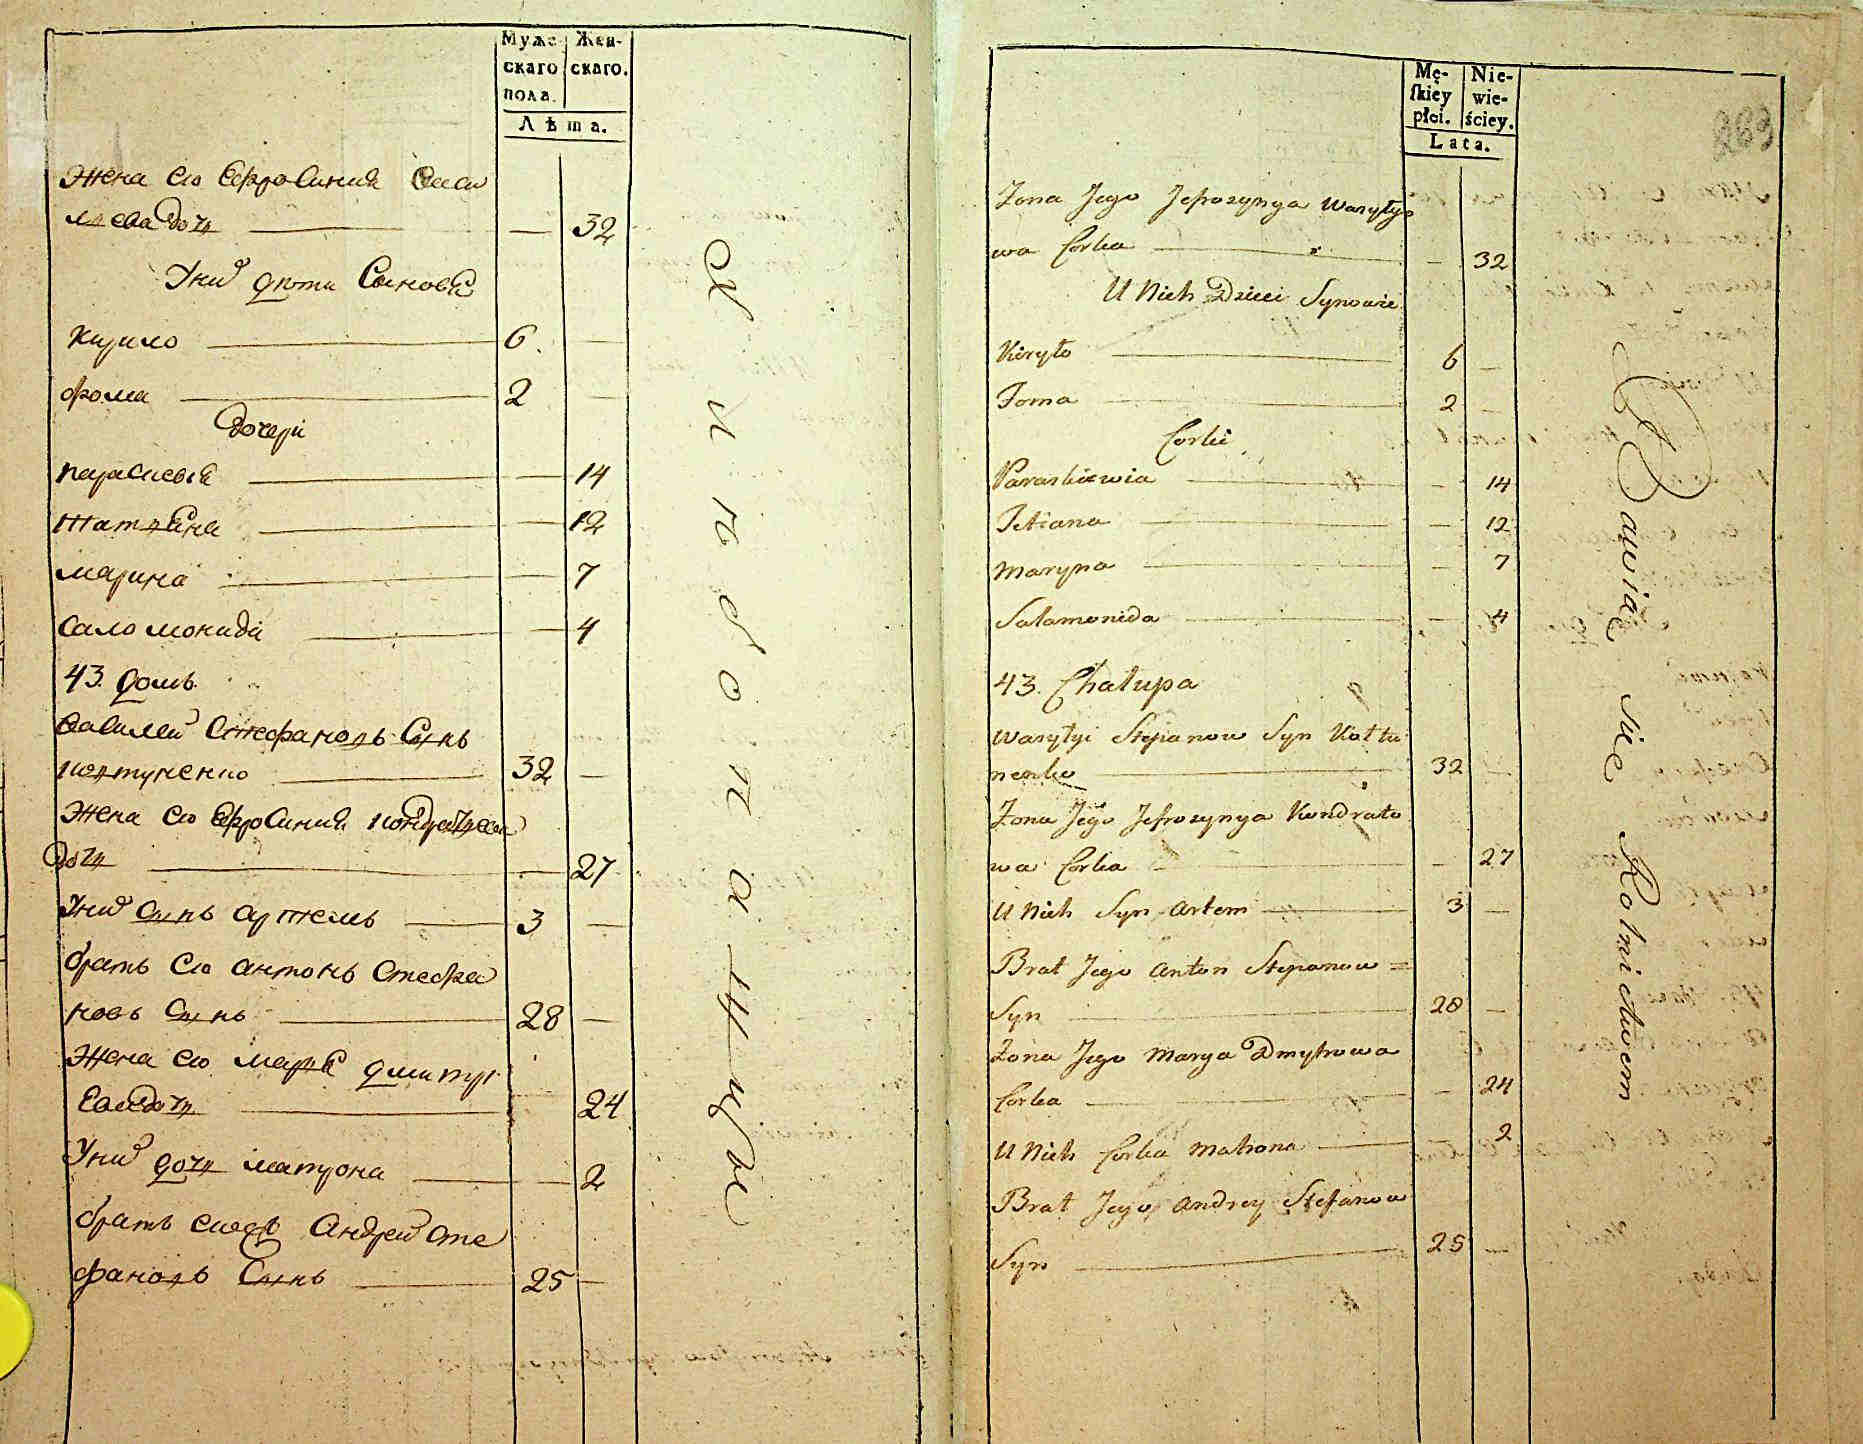 Муже-
скаго
пола.
Жен-
скаго.
Лѣта.
Жена его Ефросинія Васи
лиева дочь — 32
У них дети Сыновья
Кирило 6 —
Фома 2 —
Дочери
Параскевия — 14
Татьяна — 12
Марина — 7
Саломонида — 4
43. домъ
Василей Стефановъ Сынъ
32 —
Жена его Ефросиния Кондратьева
дочь — 27
У них Сынъ Артемъ 3 —
братъ его Антонъ Стефа
новъ Сынъ 28 —
Жена его Марья Дмитри
ева дочь — 24
У них дочь Матрона — 2
братъ Андрей Сте
фановъ Сынъ 25 —
Хлѣбопашцы
Mę-
ſkiey
płci.
Nie-
wie-
ściey.
Lata.
Żona Jego Jefrozynya Wasyłyo
wa Corka — 32
U Nich Dzieci Synowie
Kiryło 6 —
Foma 2 —
Corki
Paraskiewia — 14
Tetiana — 12
Maryna — 7
Salamonida — 4
43. Chałupa
Wasyłyi Stepanow Syn Kołtu
nenko 32 —
Żona Jego Jefrozynya Kondrato
wa Corka — 27
U Nich Syn Artem 3 —
Brat Jego Anton Stepanow =
Syn 28 —
Żona Jego Marya Dmytrowa
Corka — 24
U Nich Corka Matrona 2
Brat Jego Andrey Stefanow
Syn 25 —
Bawiąc się Rolnictwem